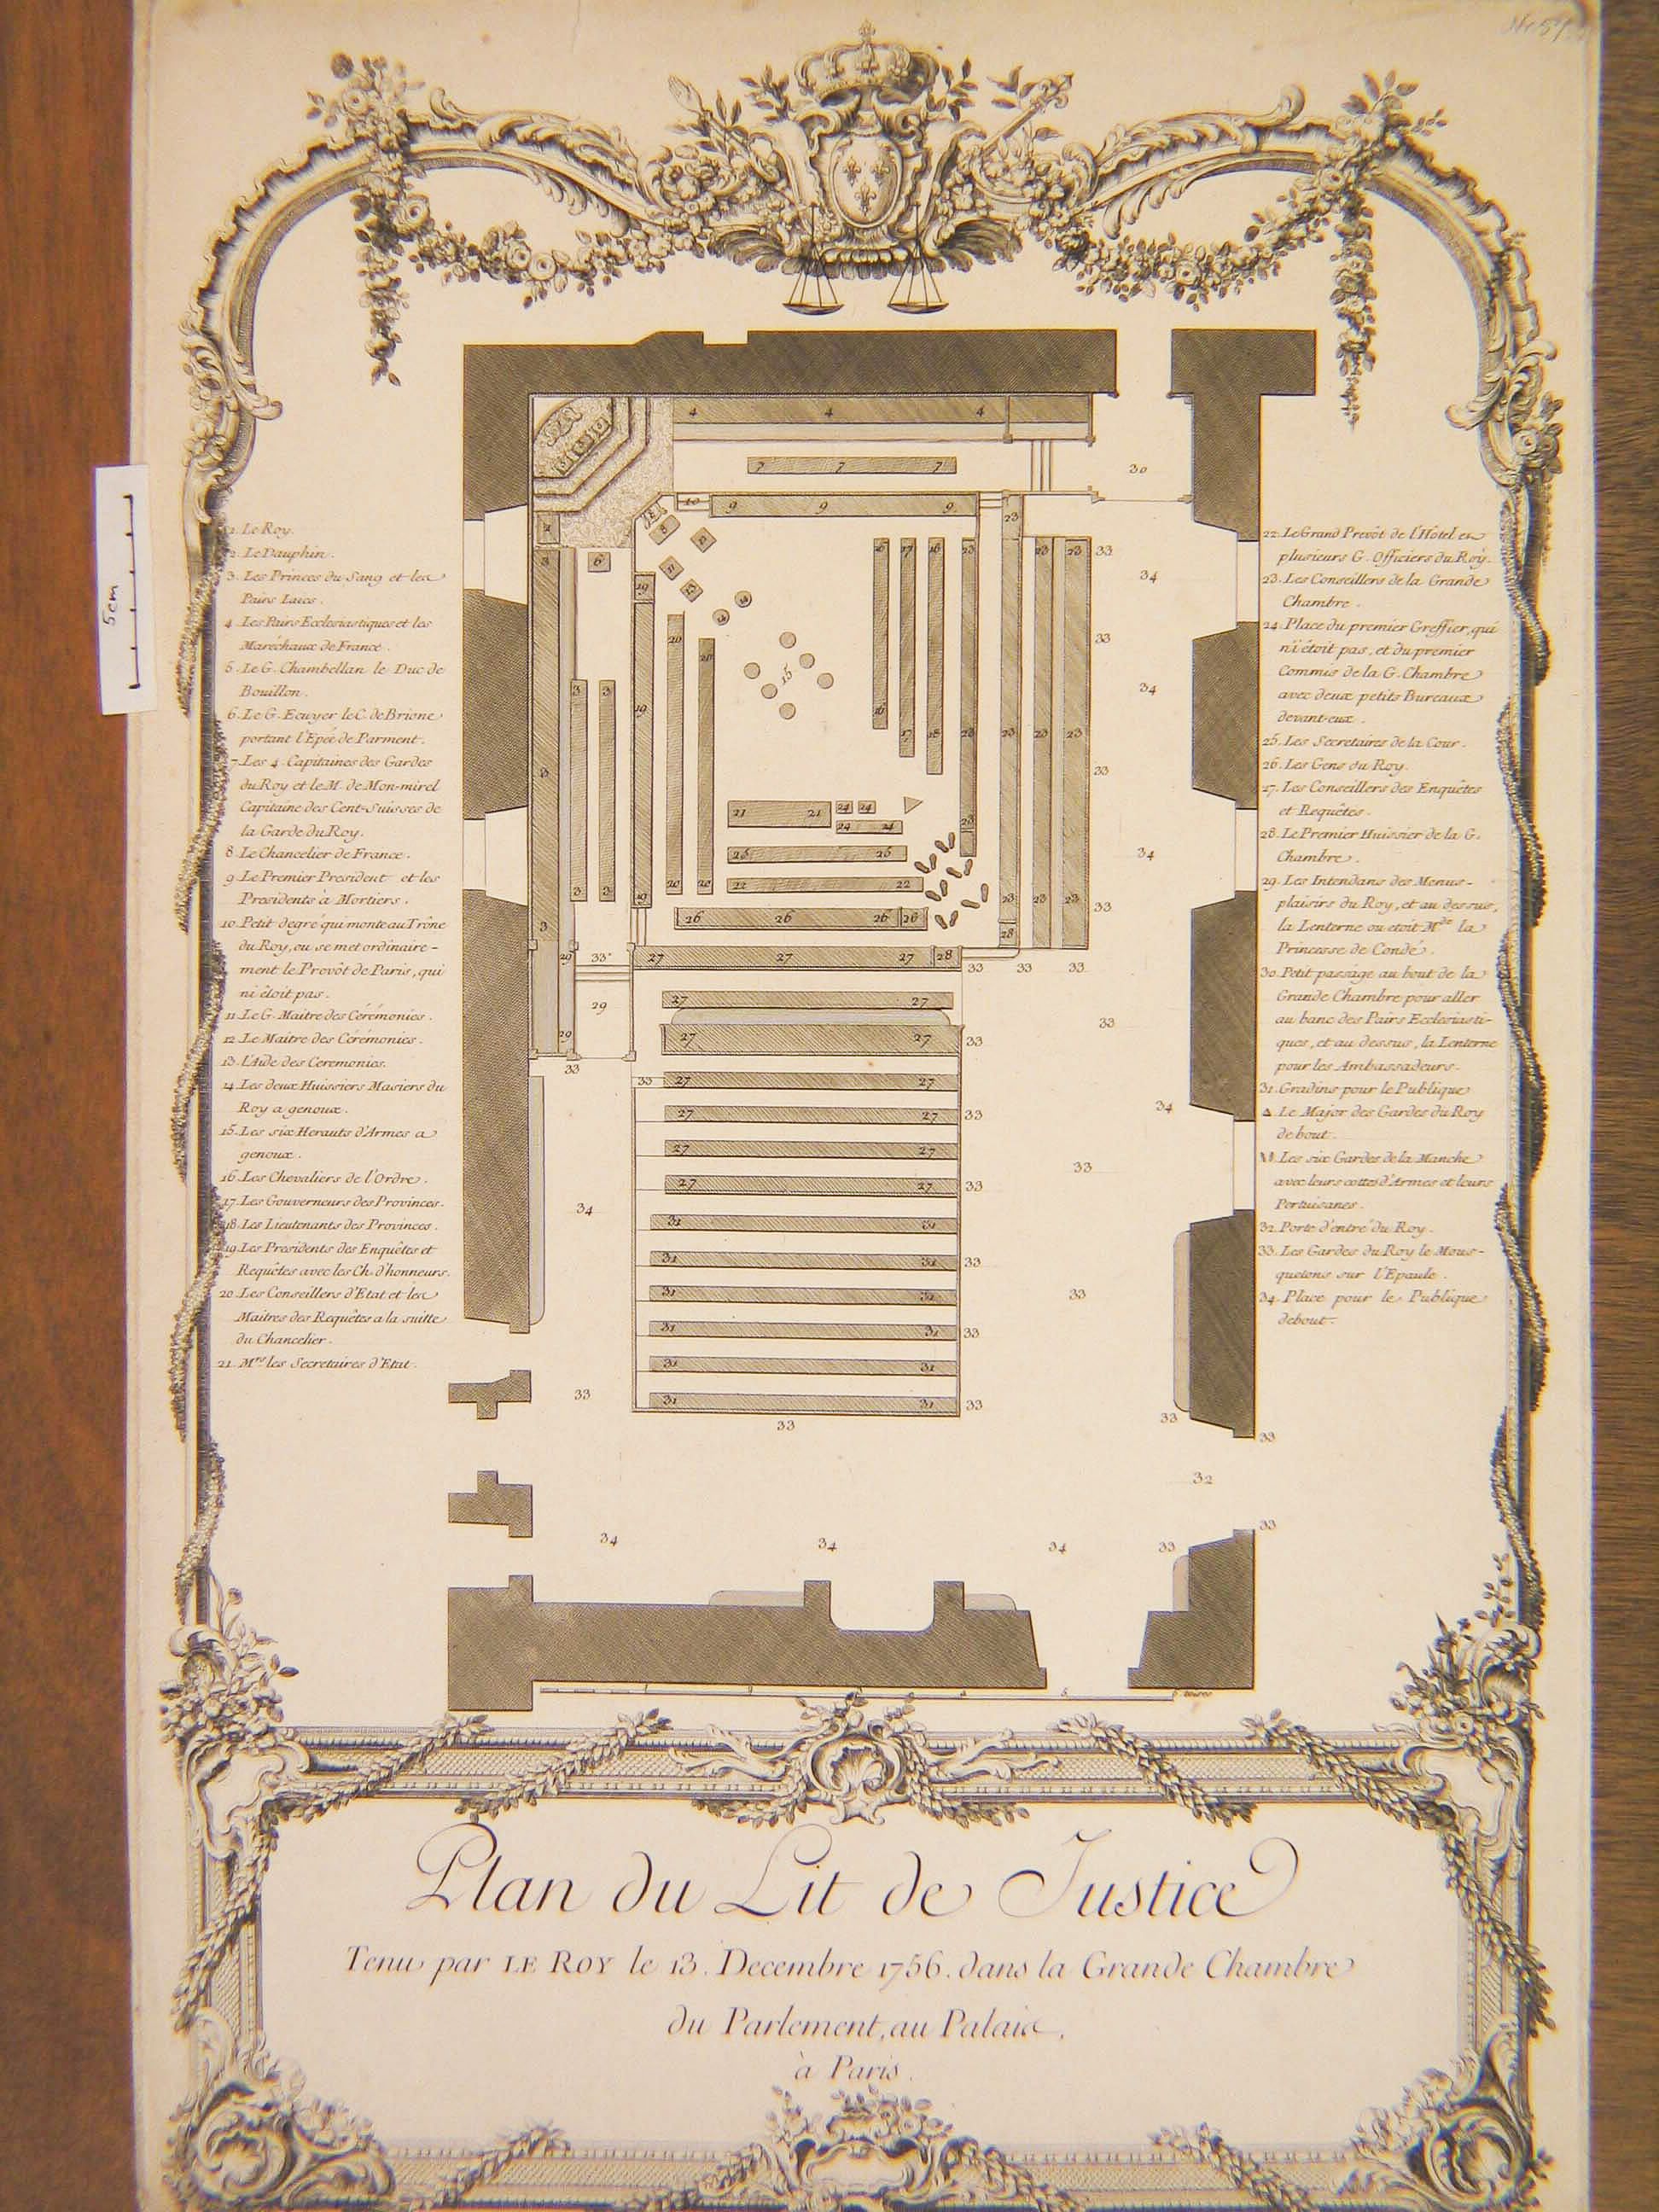 5cm
1. Le Roy.
2. Le Dauphin.
3. Les Princes du Sang et les
Pairs Laics.
4. Les Pairs Ecclesiastiques et les
Maréchaux de France.
5. Le G. Chambellan le Duc de
Bouillon.
6. Le G. Ecuyer le C. de Brione
portant l'Epeé de Parment.
7. Les 4. Capitaines des Gardes
du Roy et le M. de Mon-mirel
Capitaine des Cent-Suisses de
la Garde du Roy.
8. Le Chancelier de France.
9. Le Premier President et les
Presidents à Mortiers.
10. Petit degré qui monte au Trône
du Roy, ou se met ordinaire-
ment le Provôt de Paris, qui
ni êtoit pas.
11. Le G. Maitre des Cérémonies.
12. Le Maitre des Cérémonies.
13. l'Aide des Ceremonies.
14. Les deux Huissiers Masiers du
Roy a genoux.
15. Les six Herauts d'Armes a
genoux.
16. Les Chevaliers de l'Ordre.
17. Les Gouverneurs des Provinces.
18. Les Lieutenants des Provinces.
19. Les Presidents des Enquêtes et
Requêtes avec les Ch. d'honneurs.
20. Les Conseillers d'Etat et les
Maitres des Requêtes a la suitte
du Chancelier.
21. Mrs les Secretaires d'Etat.
22. Le Grand Prevôt de l'Hôtel et
plusieurs G. Officiers du Roy.
23. Les Conseillers de la Grande
Chambre.
24. Place du premier Greffier, qui
n'i étoit pas, et du premier
Commis de la G. Chambre
avec deux petits Bureaux
devant-eux.
25. Les Secretaires de la Cour.
26. Les Gens du Roy.
27. Les Conseillers des Enquêtes
et Requêtes.
28. Le Premier Huissier de la G.
Chambre.
29. Les Intendans des Menus-
plaisirs du Roy, et au dessus,
la Lenterne ou etoit Mde la
Princesse de Condé.
30. Petit passage au bout de la
Grande Chambre pour aller
au banc des Pairs Ecclesiasti-
ques, et au dessus, la Lenterne
pour les Ambassadeurs.
31. Gradins pour le Publique
Le Major des Gardes du Roy
debout.
Les six Gardes de la Manche
avec leurs cottes d'Armes et leurs
Pertuisanes.
32. Porte d'entré du Roy.
33. Les Gardes du Roy le Mous-
quetons sur l'Epaule.
34. Place pour le Publique
debout.
4 4 4
7 7 7
30
10 9 9 9
8
6
19
15
16 17 18 23 23 23 33
34
33
20 20
3 3
19
34
16 17 18 23 23 23 23
3
33
21 21 24 24
24 24
25 25
34
20 20 22 22
3 3 19
23 23 23
33
26 26 26 26
28
3
29 33 27 27 27 28
33 33 33
27 27
29
29
33
27 27 33
33
33 27 27
27 27 33
34
27 27
33
27 27 33
34
31 31
31 31 33
31 31
33
31 31 33
31 31
33
31 31 33
33
33
33
32
34 34 34 33 33
Plan du Lit de Justice
Tenu par LE ROY le 13. Decembre 1756. dans la Grande Chambre
du Parlement, au Palais,
à Paris.